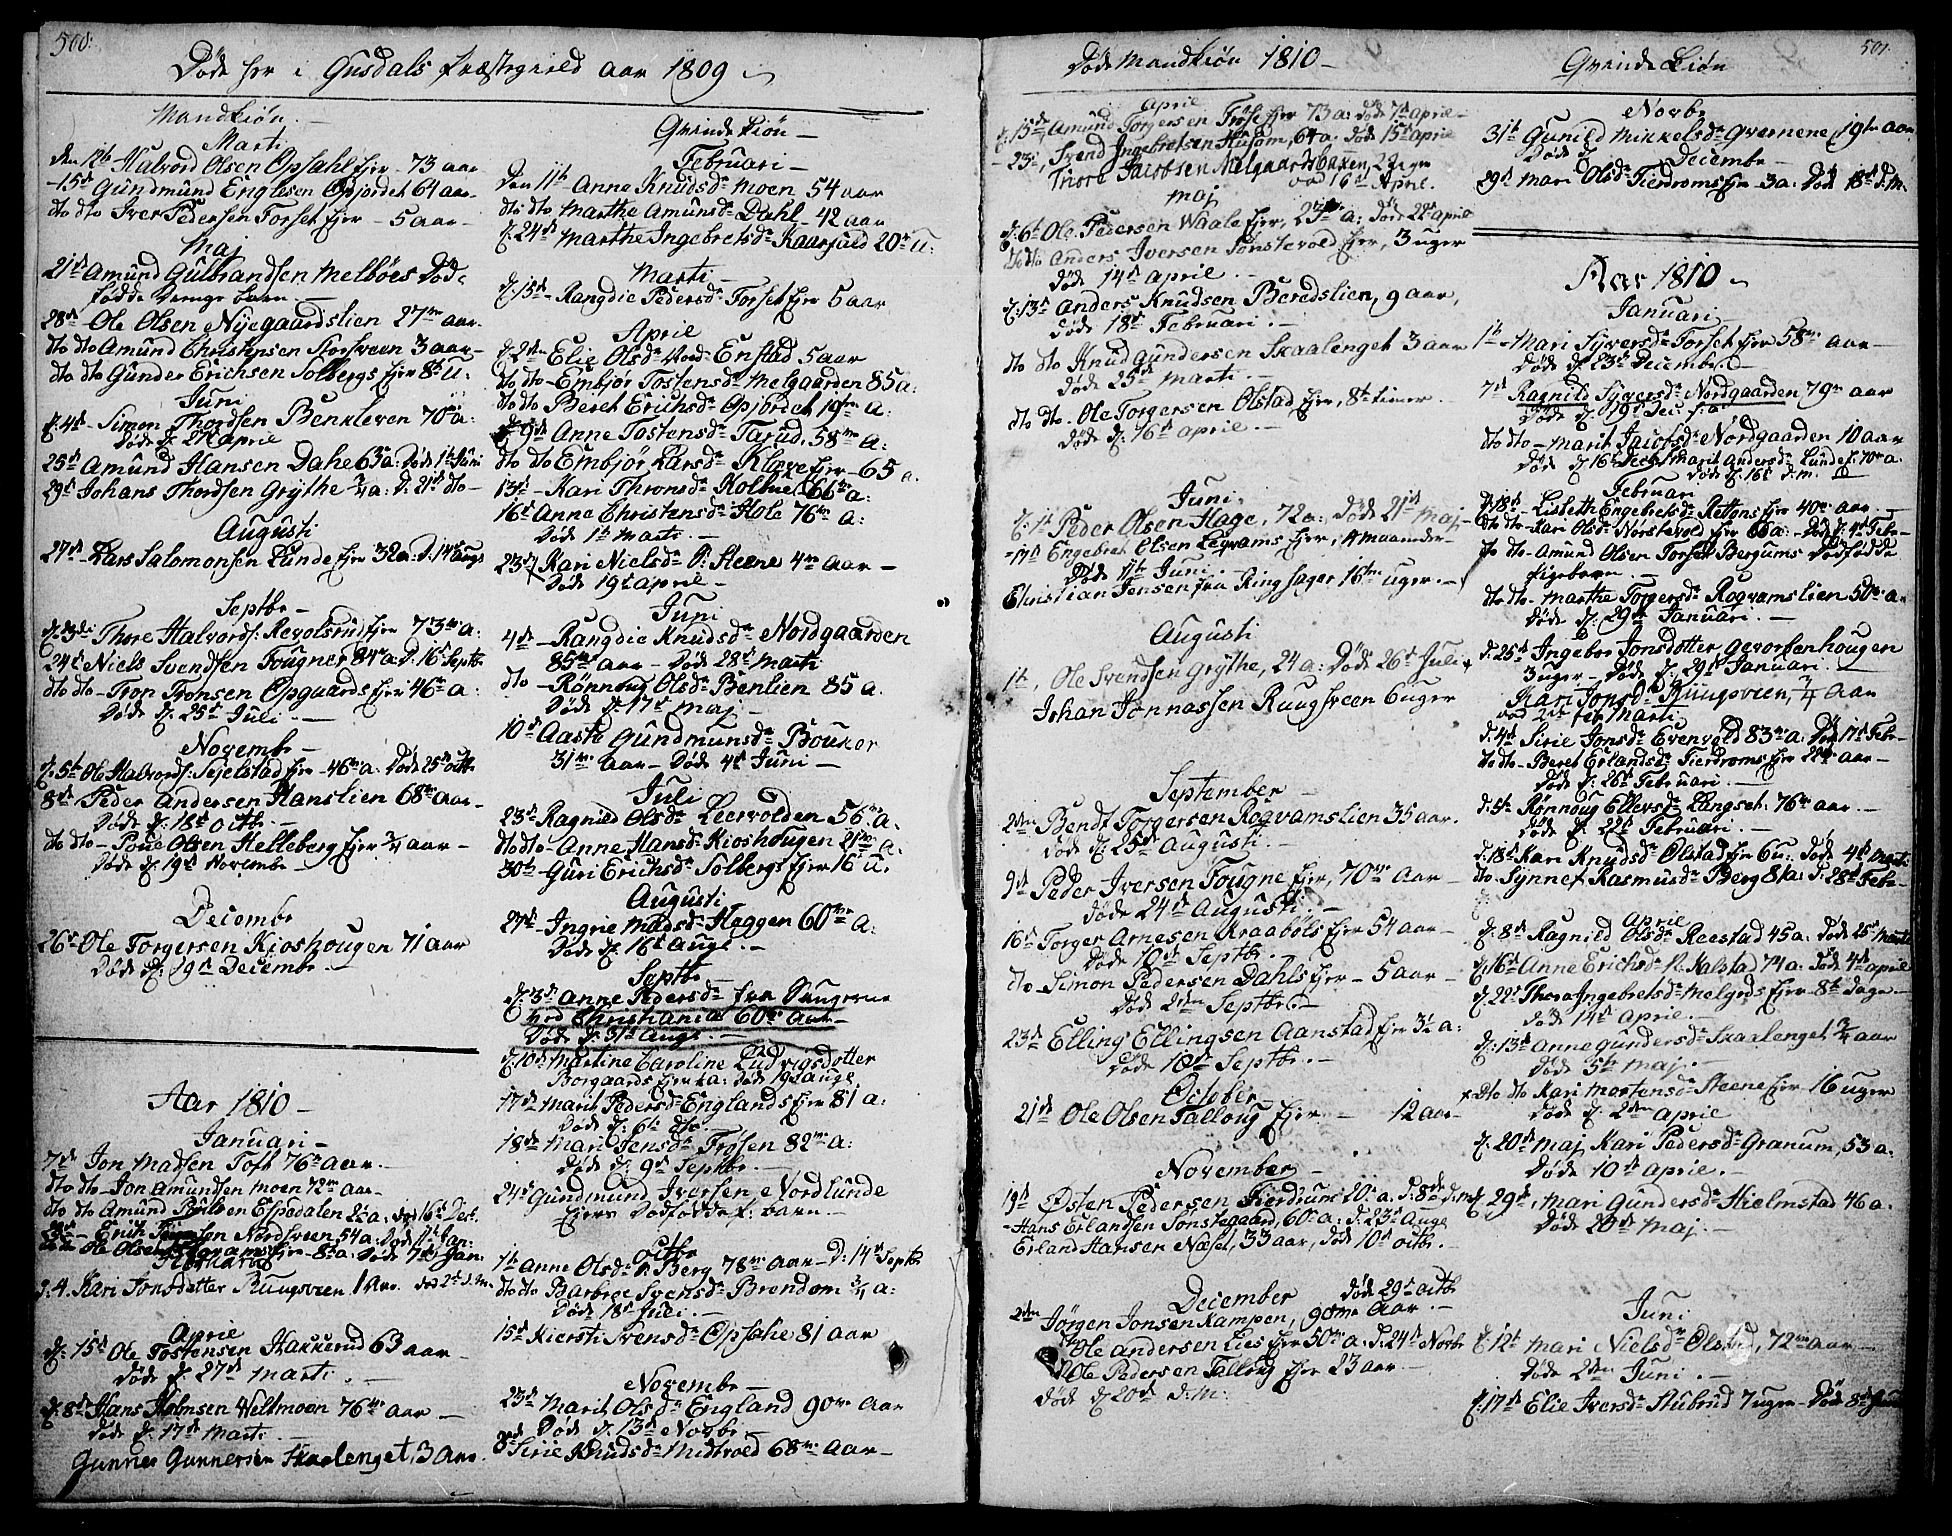 500.
Døde her i Gusdals Præstegield aar 1809
Mandkiøn.
Marti
den 12te Halvord Olsen Opsahl Ejer 73 aar
15d Gundmund Englesen Opjordet 64 aar
dto dto Iver Pedersen Forset Ejer - 5 aar -
Maj
21d Amund Gulbrandsen Melböes Död-
födde Drenge barn
28d Ole Olsen Nÿegaardslien 27me aar.
dto dto Amund Christensen Storsveen 3 aar
dto dto Gunder Erichsen Solbergs Ejer 8te U.
Juni
d. 4d Simon Thordsen Benkleven 70 a.
Död d. 27d april
25d Amund Hansen Dahle 63 a. Död 1te Juni
29d Johans Thordsen Grÿthe 3/4 a. d. 21d dto
Augusti
27d Lars Salomonsen Lunde Ejer 32 a. d. 14d Augs
Septbr
d. 3die Thore Halvords. Revolsrud Ejer 73me a.
24d Niels Svendsen Fougner 84 a. d. 16d Septbr
dto dto Tron Tronsen Opgaards Ejer 46te a.
Döde d. 25d Juli
Novembr
d. 5te Ole Halvords. Sejelstad Ejer 46te a. Död 25d octbr
8de Peder Andersen Hanslien 68me Aar
Döde d. 18d Octbr.
dto dto Povel Olsen Helleberg Ejer 3/4 aar
Döde d. 19d Novembr
Decembr
26d Ole Torgersen Kioshougen 71 aar
Döde d. 19d Decembr.
Aar 1810
Januari
7d Jon Madsen Toft 76te Aar.
dto dto Jon Amundsen Moen 72me aar
dto dto Amund Poulsen Espedalen 2½ a. död 16d Dec.
Erich Nordsveen 54 a. död Jan.
Ole Olsen Ejer 8te a. Död 7de Jan
Februarij
d. 4. Kari Jonsdatter Ruugsveen 1 Aar. död 2d d. M.
Aprili
d. 15d Ole Tostensen Hakkerud 63 aar
Döde d. 27d Marti.
d. 8d Hans Holmsen Veltmoen 76te aar
Döde d. 17d Marti
Gunner Gunnersen Skaalenget, 3 Aar.
Qvindekiön
Februari
Den 11te Anne Knudsdr Moen 54 aar
dto dto Marthe Amunsdr Dahl 42 aar
d. 24d Marthe Ingebretsdr Kaarjuld 20 U.
Marti
d. 15d Rangdie Pedersdr Forset Ejer 5 aar
April
d. 2den Elie Olsdr Nord Enstad 5 aar
dto dto Embjör Tostensdr Melgaarden 85 a.
dto dto Beret Erichsdr Opjordet 19te a.
d. 9d Anne Tostensdr Tarud, 58me a.
dto dto Embjör Larsdr Kløve Ejer 65 a.
13d Kari Thronsdr Kolbue 66te a.
16d Anne Christensdr Hole 76te a.
Död 1te Marti.
23d Kari Nielsdr P. Steene 4re Aar
Död 19d april
Juni
4d Rangdie Knudsdr Nordgaarden
85me aar Död 28d Marti
dto Rönnoug Olsdr Benlien 85 a.
Död d. 17d Maj
10d Aaste Gundmunsdr Bouker
31me Aar Död 4d Juni
Juli
23d Ragnild Olsdr Leervolden 56te a.
dto dto Anne Hansdr Kioshougen 21de a.
30te Guri Erichsdr Solbergs Ejer 16d U.
Augusti
27d Ingrie Madsdr Heggen 60me a.
Död d. 16d Augs.
Septbr
d. 3d Anne Pedersdr fra Vangerne
ved Christiania 60me Aar
Död d. 31d Augs.
d. 10d Martine Caroline Ludvigsdotter
Borgaards Ejer 1 a. Död 19d Augs
17d Marit Pedersdr Englands Ejer 81 a.
Död d. 6te dto
18d Mari Jensdr Frösen 82me a.
Död d. 9d Septbr.
24d Gundmund Iversen Nordlunde
Ejers Dodföddef. barn
Octbr
1te Anne Olsdr P. Berg 78me Aar D. 14d Septbr
dto dto Barbroe Svensdr Brendom 3/4 a.
Död 18d Juli.
15d Kiersti Svensdr Opsahl 81 aar
Novembr
23d Marit Olsdr England 90me Aar
Död d. 13d Novbr.
8d Sirie Knudsdr Midtvold 68me Aar
501.
Döde Mandkiön 1810
April
d. 15d Amund Torgersen Fröse Ejer 73 a. Död 7d April
23d, Svend Ingebretsen Husom, 64 a. Död 15d april
Thore Jacobsen Melgaardsbaken, 22 Uger
död 16d April.
Maj
d. 6te Ole Pedersen Waale Ejer, 23d a. Döde 22d april
dto dto Anders Iversen Tonstevold Ejer, 3 uger
Döde 14d april.
d. 13d Anders Knudsen Beredslien, 9 aar,
Döde 18d Februari.
dto dto Knud Gundersen Skaalenget 3 aar
Döde 25d Marti.
dto dto. Ole Torgersen Olstad Ejer, 8te timer
Döde d. 16d april.
Juni.
d. 1te Peder Olsen Hage, 72 a., Död 21d Maj
17d Engebret Olsen Legrams Ejer, 4 maaneder
Döde 11te Juni.
Christian Jensen fra Ringsager 16te uger.
Augusti
1te, Ole Svendsen Grÿthe, 24 a. Döde 26d Juli
Johan Jonnassen Ruugsveen 6 uger
September
2den Bendt Torgersen Rogvamslien 35 aar.
Döde d. 25d Augusti.
9d Peder Iversen Fougne Ejer, 70me Aar
Döde 24d Augusti.
16d Torger Arnesen Kraaböls Ejer 54 aar
Döde 10d Septbr.
dto Simon Pedersen Dahls Ejer 5 aar
Död 2den Septbr.
23d Elling Ellingsen Aanstad Ejer 3½ a.
Döde 18d Septbr.
October
21d Ole Olsen Talloug Ejer 12 aar
November
19d Östen Pedersen Fierdrums 20. a. d. 8de d. M
Hans Erlandsen Tonstegaard, 60 a. d. 23d Augs
Erland Hansen Næset, 33 aar, Död 10d Octbr.
December Döde 29d Octb
2den Jörgen Jonsen Kampen, 90me Aar.
Ole Andersen Lies Ejer 50me a. d. 24d Novbr
Ole Pedersen Tallöug Ejer 23 aar
Döde d. 20d d. M.
Qvindekiön
Novbr
31te Gunild Mikkelsdr Qvernene, 19ten aar
Döde d.
Decembr
29d Mari Olsdr Fierdroms Ejer 3 a. Död 18d d. M.
Aar 1810
Januari
1te Mari Syversdr Forset Ejer 58me aar
Döde d. 23d Decembr.
7d Ragnild Syversdr Nordgaarden 79me aar
Döde d. 19d Dec f. a.
dto dto Marit Jacobsdr Nordgaarden 10 aar
Död d. 16d Decbr / Marit Andersdr Lunde f. 70me a.
Död d. 16d d. m.
Februari
d. 18d Lisbeth Engebretsdr Rettens Ejer 40me aar
dto dto Kari Olsdr Nörstevold Ejer 66 a. Död d. 4d Febr
dto dto Amund Olsen Forset Bergums Dödfödde
Pigebarn
dto dto Marthe Torgersdr Rogvamslien 50me a.
Döde d. 29d Januari.
d. 25d Ingebor Jonsdotter Gevorkenhougen
3 uger Död d. 29d Januari.
Kari Jonsdr Ruugsveen, 3/4 Aar
Marti
d. 4d Sirie Jonsdr Evenvold 83me a. Död 17d Febr
dto dto Beret Erlandsdr Fierdroms Ejer 22de aar
Död d. 26d Februari.
d. 5te Rönnoug Ellevsdr Langset 76te aar.
Döde d. 22d Februari.
d. 18d Kari Knudsdr Olstad Ejer 6 u. Döde 4d Marti
dto Synnef Rasmusdr Berg 81 a. d. 28d Febr
Aprili
d. 8d Ragnild Olsdr Reestad 45 a. Döde 25d Marti
d. 16d Anne Erichsdr N. Kalstad 74 a. Döde 4d april
d. 22d Thora Ingebretsdr Melgrds Ejer 8te Dage
Döde 14d April.
d. 13d Anne Gundersdr Skaalenget 3/4 aar
Döde 5te Maj.
dto dto Kari Mortensdr Steene Ejer 16 uger
Döde d. 2den aprili
d. 20d Maj Kari Pedersdr Granum, 53 a.
Döde 10d april.
d. 29d, Mari Gundersdr Hielmstad 46 a.
Döde 20d Maj.
Juni
d. 12te Mari Nielsdr Olstad, 72me aar
Döde 2den Juni.
d. 17d Elie Iversdr Stubrud 7 uger Död 8d Juni